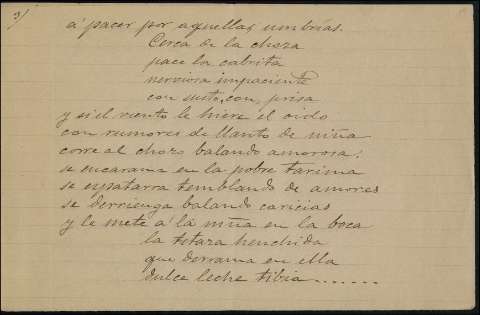 3)
á pacer por aquellas umbrías.
Cerca de la choza
pace la cabrita
nerviosa impaciente
con susto, con prisa
y si el viento le hiere el oido
con rumores de llanto de niña
corre al chozo balando amorosa;
se encarama en la pobre tarima
se espatarra temblando de amores
se derrienga balando caricias
y le mete á la niña en la boca
la tetaza henchida
que derrama en ella
dulce leche tibia.......